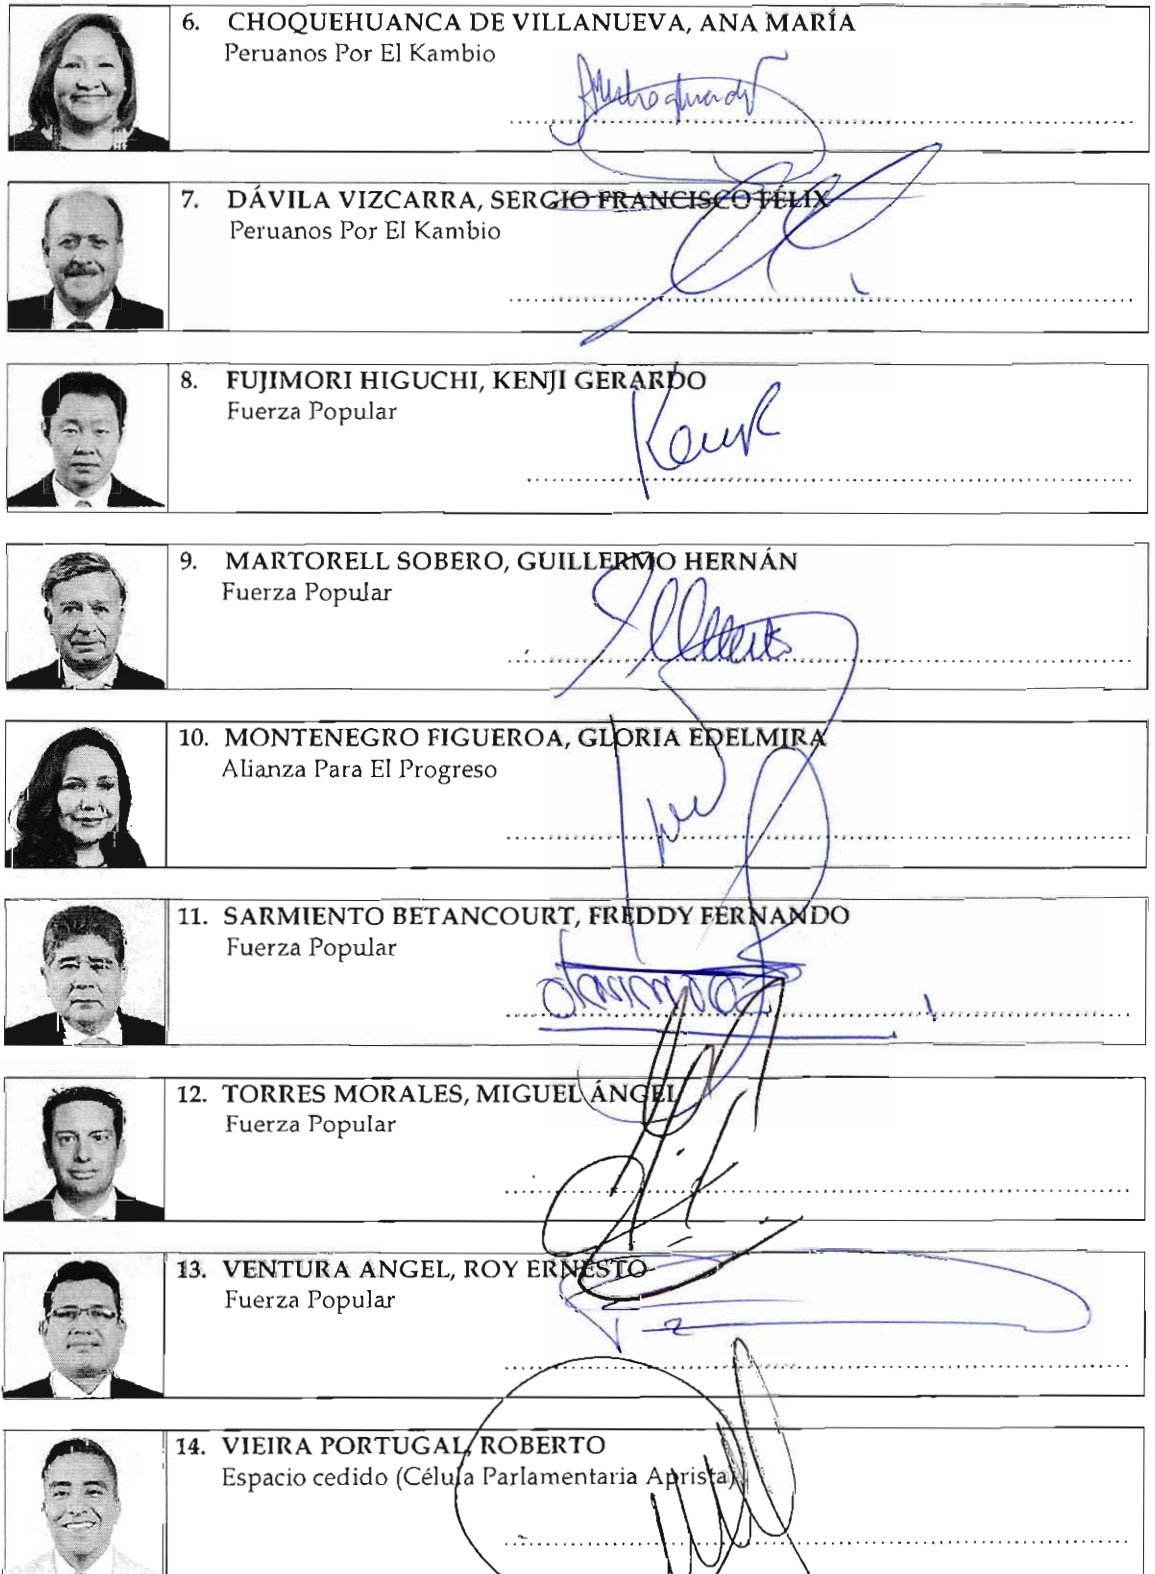 6. CHOQUEHUANCA DE VILLANUEVA, ANA MARÍA
Peruanos Por El Kambio
7. DÁVILA VIZCARRA, SERGIO FRANCISCO FÉLIX
Peruanos Por El Kambio
8. FUJIMORI HIGUCHI, KENJI GERARDO
Fuerza Popular
9. MARTORELL SOBERO, GUILLERMO HERNÁN
Fuerza Popular
10. MONTENEGRO FIGUEROA, GLORIA EDELMIRA
Alianza Para El Progreso
11. SARMIENTO BETANCOURT, FREDDY FERNANDO
Fuerza Popular
12. TORRES MORALES, MIGUEL ÁNGEL
Fuerza Popular
13. VENTURA ANGEL, ROY ERNESTO
Fuerza Popular
14. VIEIRA PORTUGAL, ROBERTO
Espacio cedido (Célula Parlamentaria Aprista)